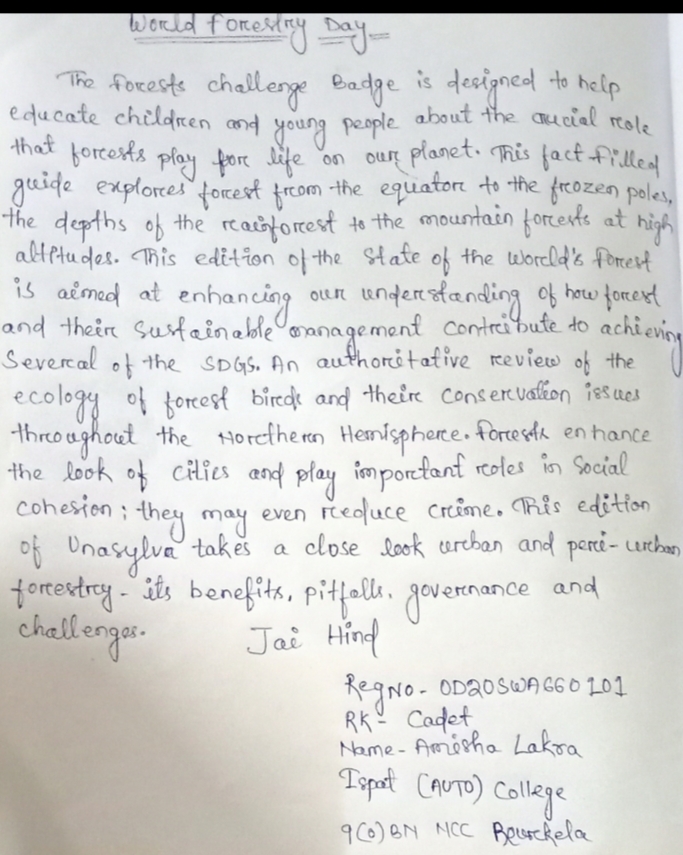 World Forestry Day
The forests challenge Badge is designed to help
educate children and young people about the crucial role
that forests play for life on our planet. This fact filled
guide explores forest from the equator to the frozen poles,
the depths of the rainforest to the mountain forests at high
altitudes. This edition of the State of the World's Forest
is aimed at enhancing our understanding of how forest
and their sustainable management contribute to achieving
Several of the SDGS. An authoritative review of the
ecology of forest birds and their conservation issues
throughout the Northern Hemisphere. Forests enhance
the look of cities and play important roles in Social
cohesion; they may even reduce crime. This edition
of Unasylva takes a close look urban and peri-urban
forestry- its benefits, pitfalls, governance and
challenges. Jai Hind
Reg No- OD20SWA660101
RK- Cadet
Name- Amisha Lakra
Ispat (AUTO) College
9(O) BN NCC